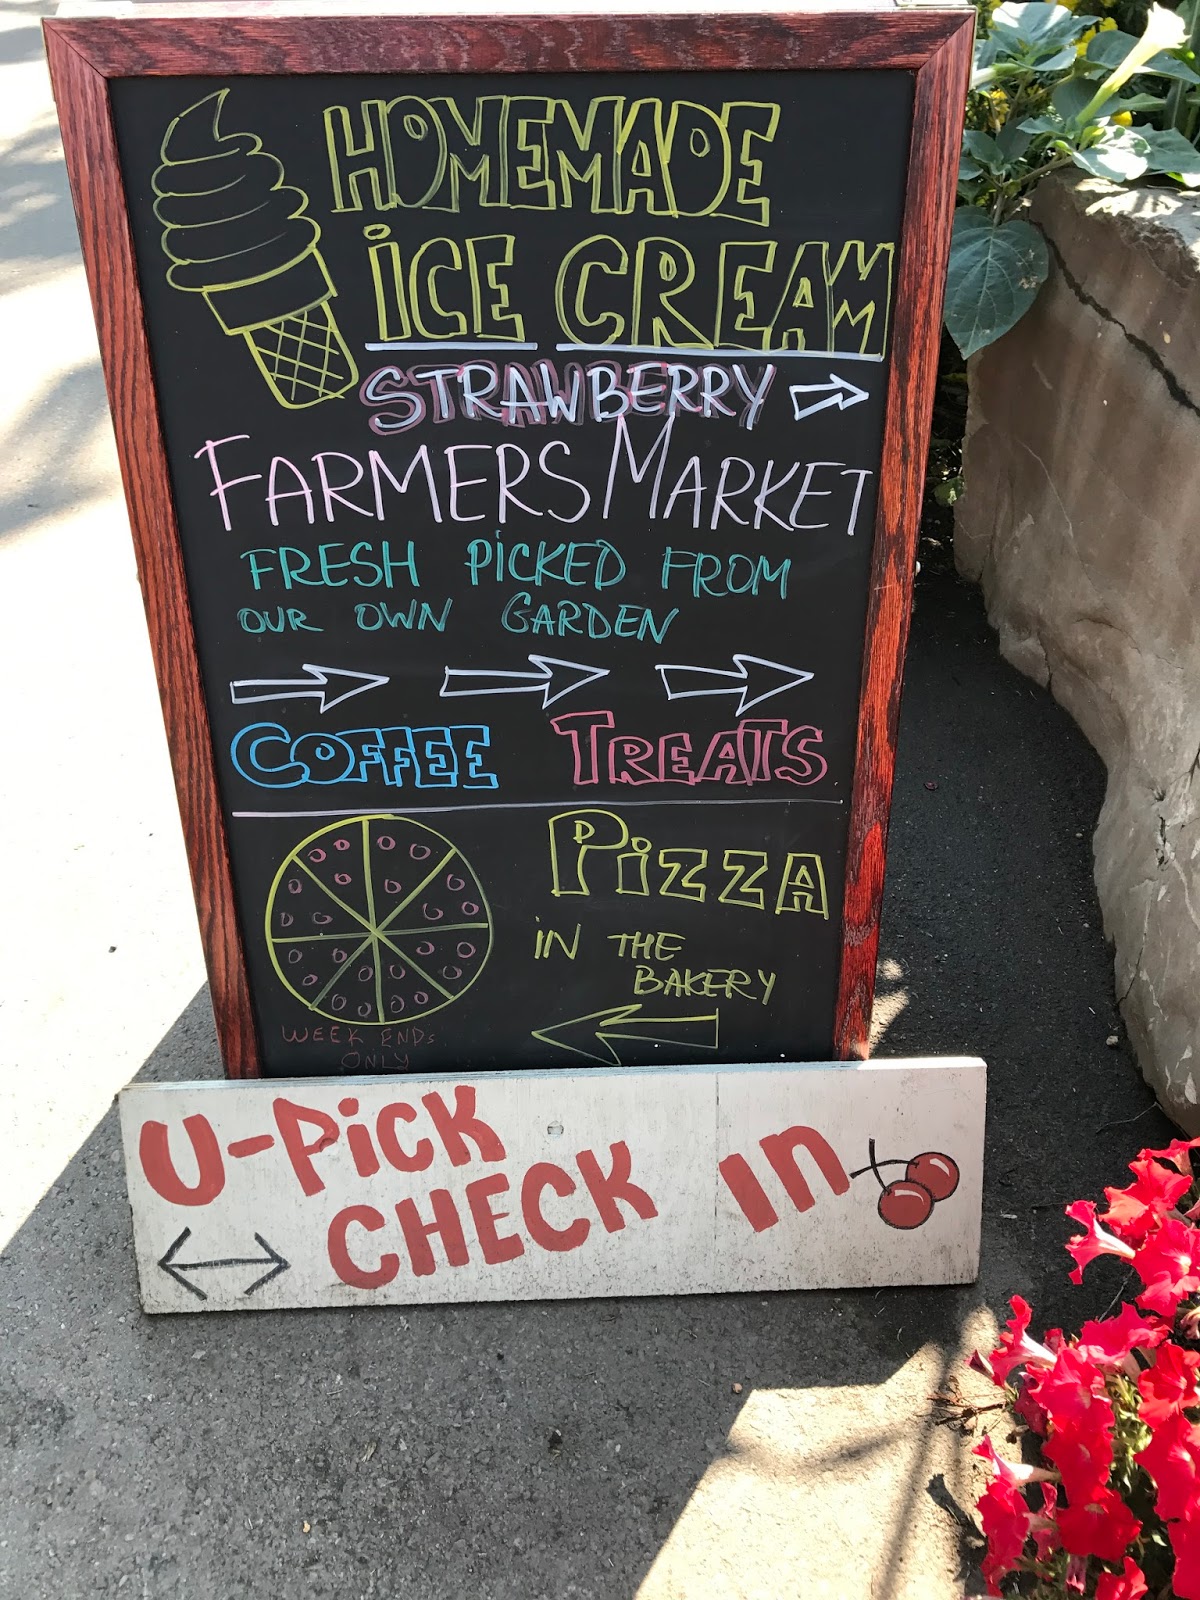 HOMEMADE
iCE CREAM
STRAWBERRY
FARMERS MARKET
FRESH PiCKED FROM
OUR OWN GARDEN
COFFEE TREATS
PiZZA
iN THE
BAKERY
WEEK ENDs
ONLY
U-PiCK
CHECK IN